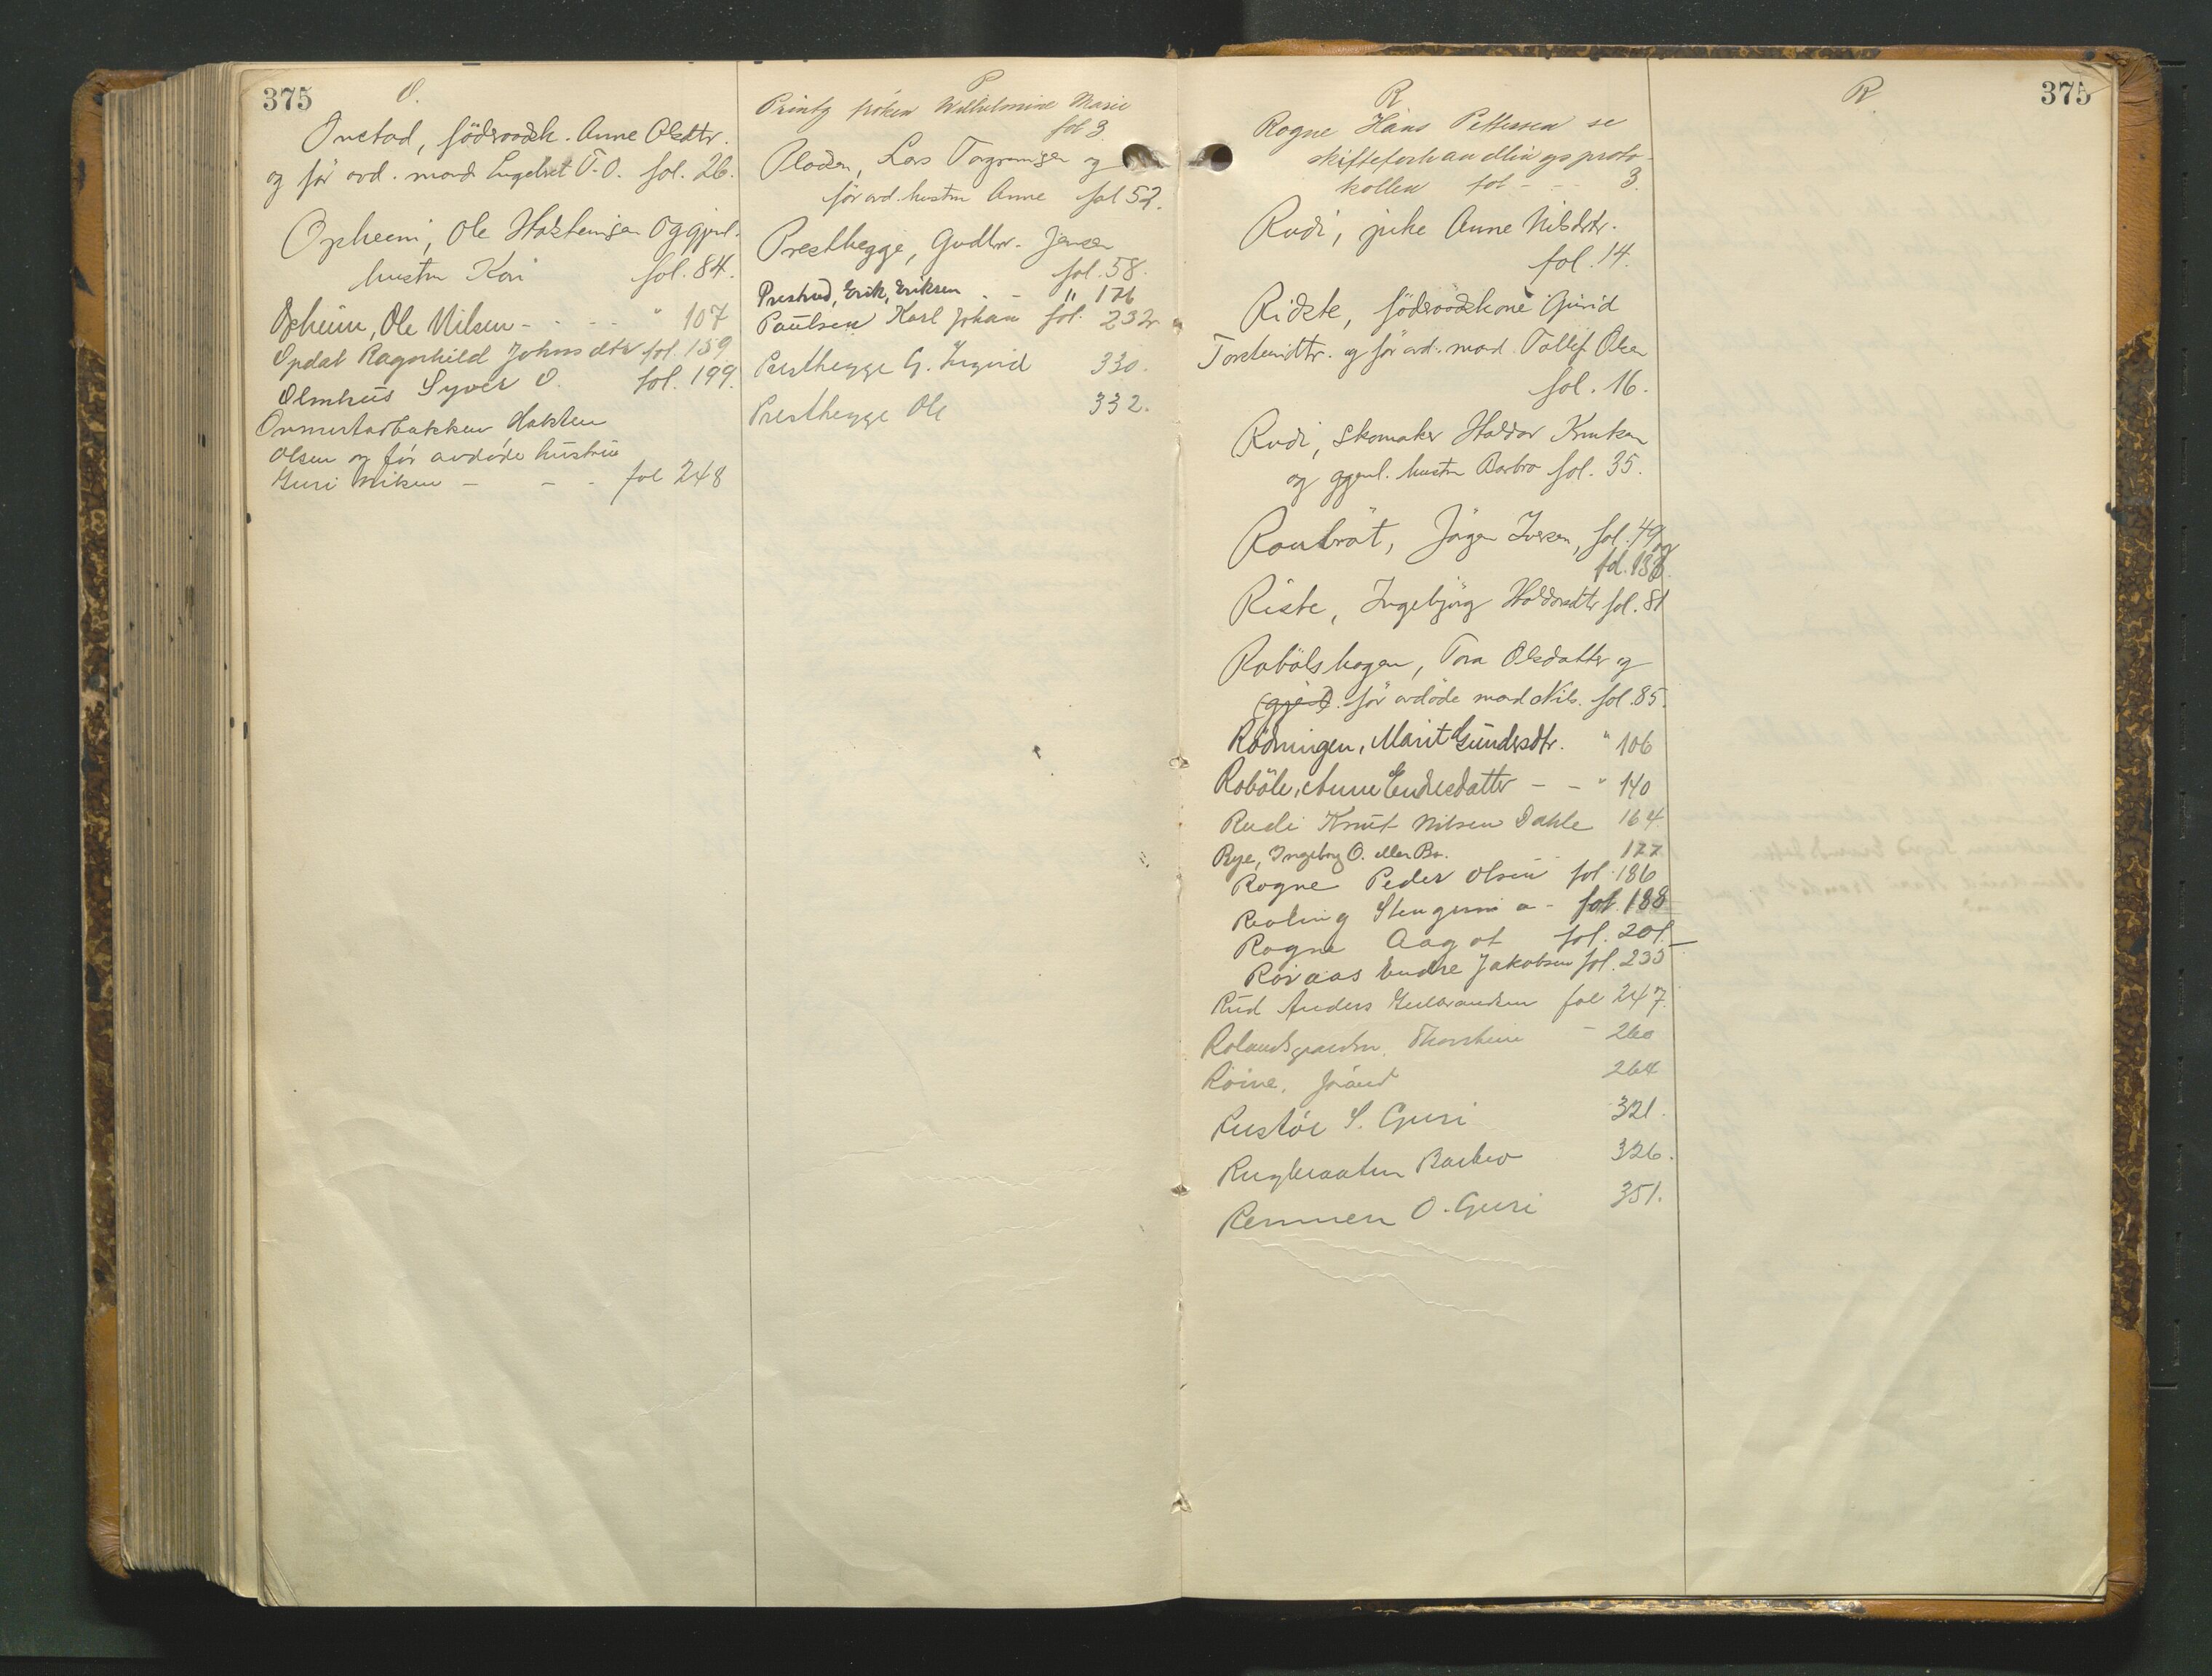 375
O.
Onstad, föderaadsk. Anne Olsdtr.
og før avd. mand Engebret T. O. fol. 26.
Opheim, Ole Halsteinsen og gjenl.
hustru Kari fol. 84.
Opheim, Ole Nilsen - - - - " 107
Opdal Ragnhild Johnsdtr fol. 159
Olmhus Syver O. fol. 199.
Halsten
Olsen og før avdøde hustru
Guri - - - fol 248
P
Printz frøken Wilhelmine Marie
fol 3
Pladsen, Lars Torgrimsen og
før avd. hustru Anne fol 52.
Presthegge, Gudbr. Jensen
fol. 58.
Prestrud, Erik, Eriksen - - " 176
Paulsen Karl Johan fol. 232
Presthegge G. Ingrid 330.
Presthegge Ole 332.
R.
Rogne Hans Pettersen se
skifteforhandlingsproto-
kollen fol - - - 3.
Rudi, pike Anne Nilsdtr.
fol. 14.
Ridste, föderaadskone Gurid
Torsteinsdtr. og før avd. mand Tollef Olsen
fol. 16.
Rudi, Skomaker Haldor Knutsen
og gjenl. hustru Barbro fol. 35.
Iversen, fol. 49 og
fol. 186.
Riste, Ingebjörg Haldorsdtr fol. 81
Robölshagen, Tora Olsdatter og
gjenl. før avdöde mand Nils. fol. 85.
Rödningen, Marit Gundersdtr. " 106
Roböle, Anne Endresdatter - - " 140
Rudi Knut Nilsen Dahle 164
Rye, Ingeborg O. eller Bo. 177
Rogne Peder Olsen fol. 186
fol. 188
Rogne Aagot fol. 201.
Röraas Endre Jakobsen fol. 235
Rud Anders Gulbrandsen fol 247.
Rolandsgaarden, Thorstein - 260
Röine, Jörand 264
Rustöe S. Guri 321.
Rugbraaten Barbro 326.
Remmen O. Guri 351.
R.
375